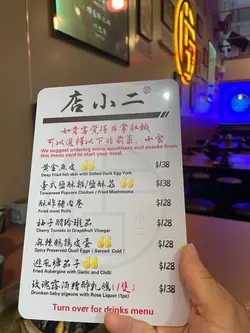 店小二
如貴客覺得非常肚餓
可以選擇以下的前菜，小食
We suggest ordering some appetisers and snacks from
this menu card to start your meal.
黃金魚皮 $138
Deep Fried fish skin with Salted Duck Egg York
臺式鹽酥雞/鹽酥菇 $138
Taiwanese Popcorn Chicken / Fried Mushrooms
酥炸豬肉卷 $128
Fried meat Rolls
柚子醋玲瓏茄 $128
Cherry Tomato in Grapefruit Vinegar
麻辣鵪鶉皮蛋 $128
Spicy Preserved Quail Eggs (Served Cold)
避風塘茄子 $128
Fried Aubergine with Garlic and Chilli
玫瑰露酒糟醉乳鴿(1隻) $138
Drunken baby pigeons with Rose Liquor (1pc)
Turn over for drinks menu